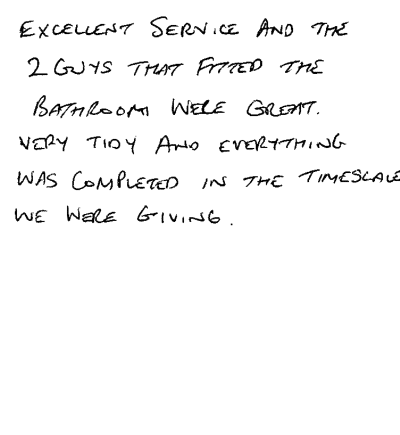 EXCELLENT SERVICE AND THE
2 GUYS THAT FITTED THE
BATHROOM WERE GREAT.
VERY TIDY AND EVERYTHING
WAS COMPLETED IN THE TIMESCALE
WE WERE GIVING.